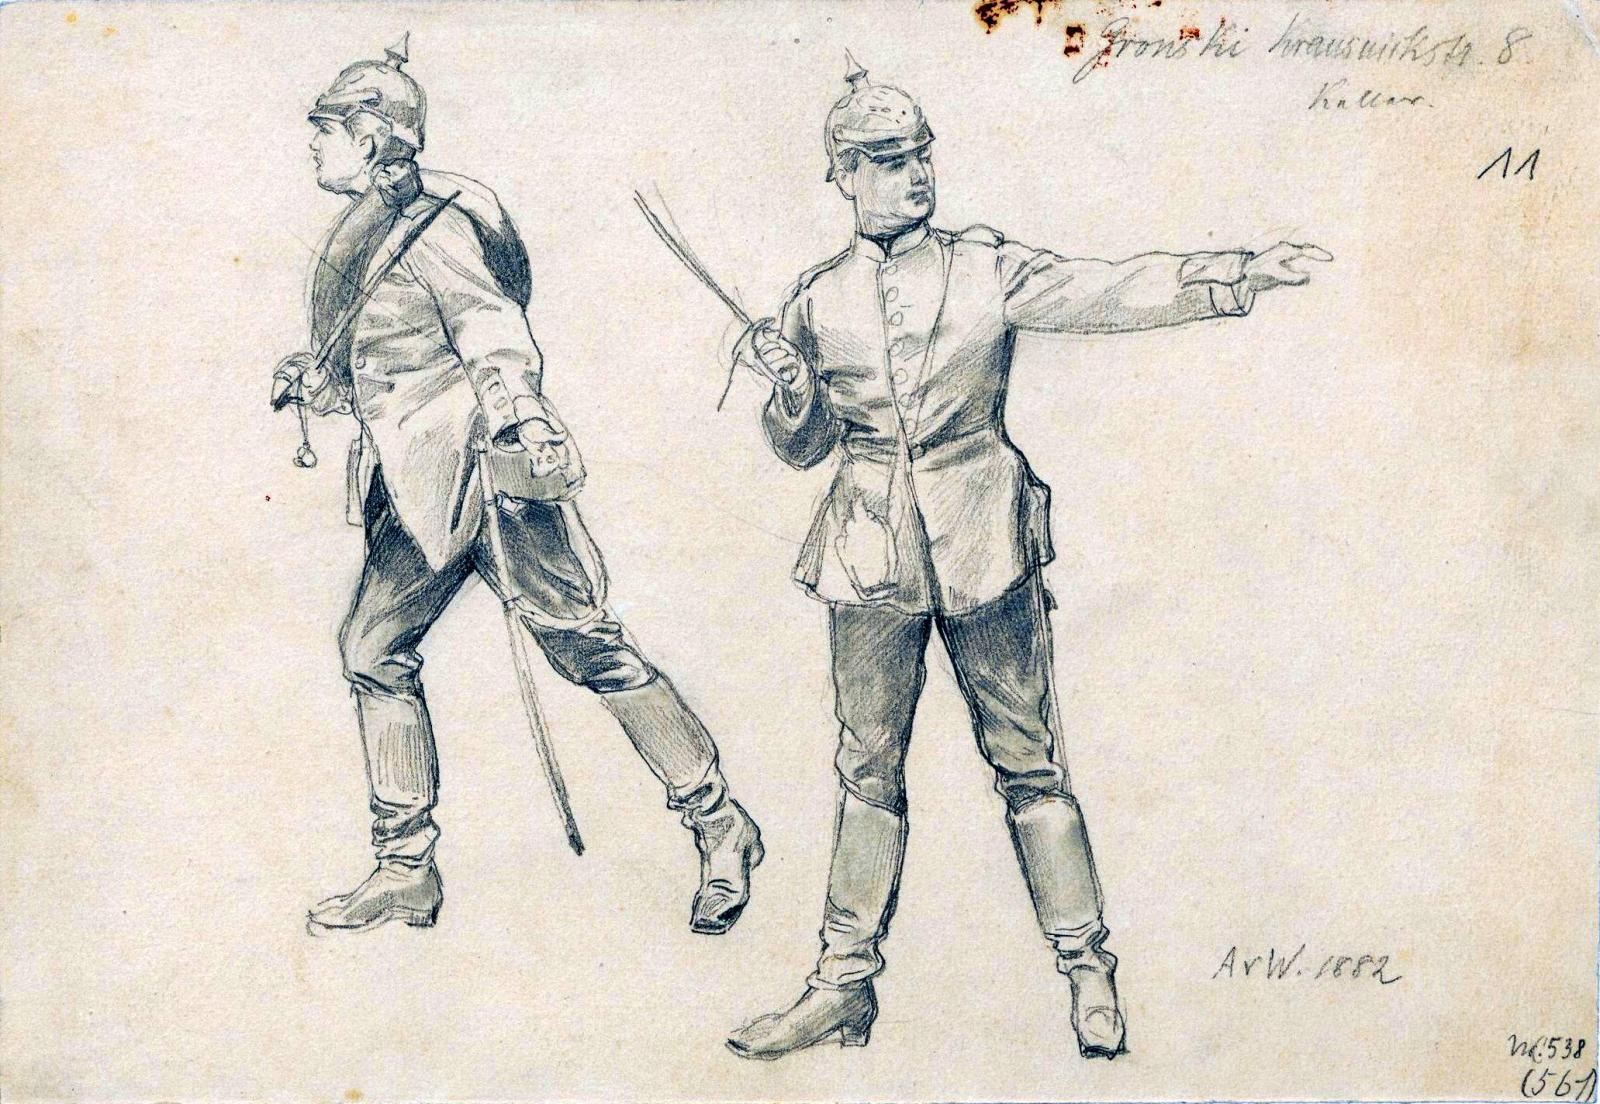 Gronski Krausnickstr. 8
Keller.
11
AvW. 1882
Nr. 538
(561)